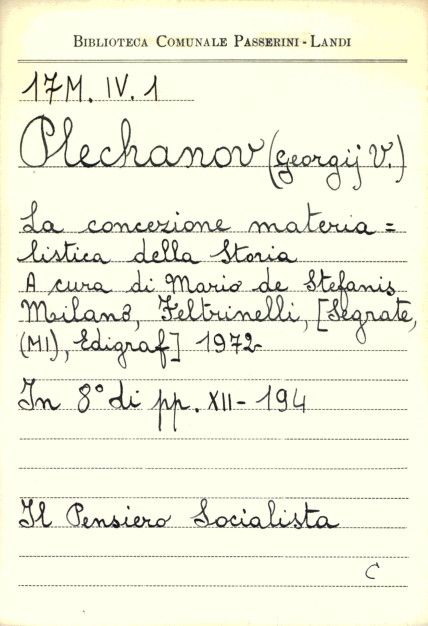 BIBLIOTECA COMUNALE PASSERINI-LANDI
17M. IV. 1
Plechanov (Georgij V.)
La concezione materia=
listica della Storia
A cura di Mario de Stefanis
Milano, Feltrinelli, [Segrate,
(MI), Edigraf] 1972
In 8° di pp. XII-194
Il Pensiero Socialista
C